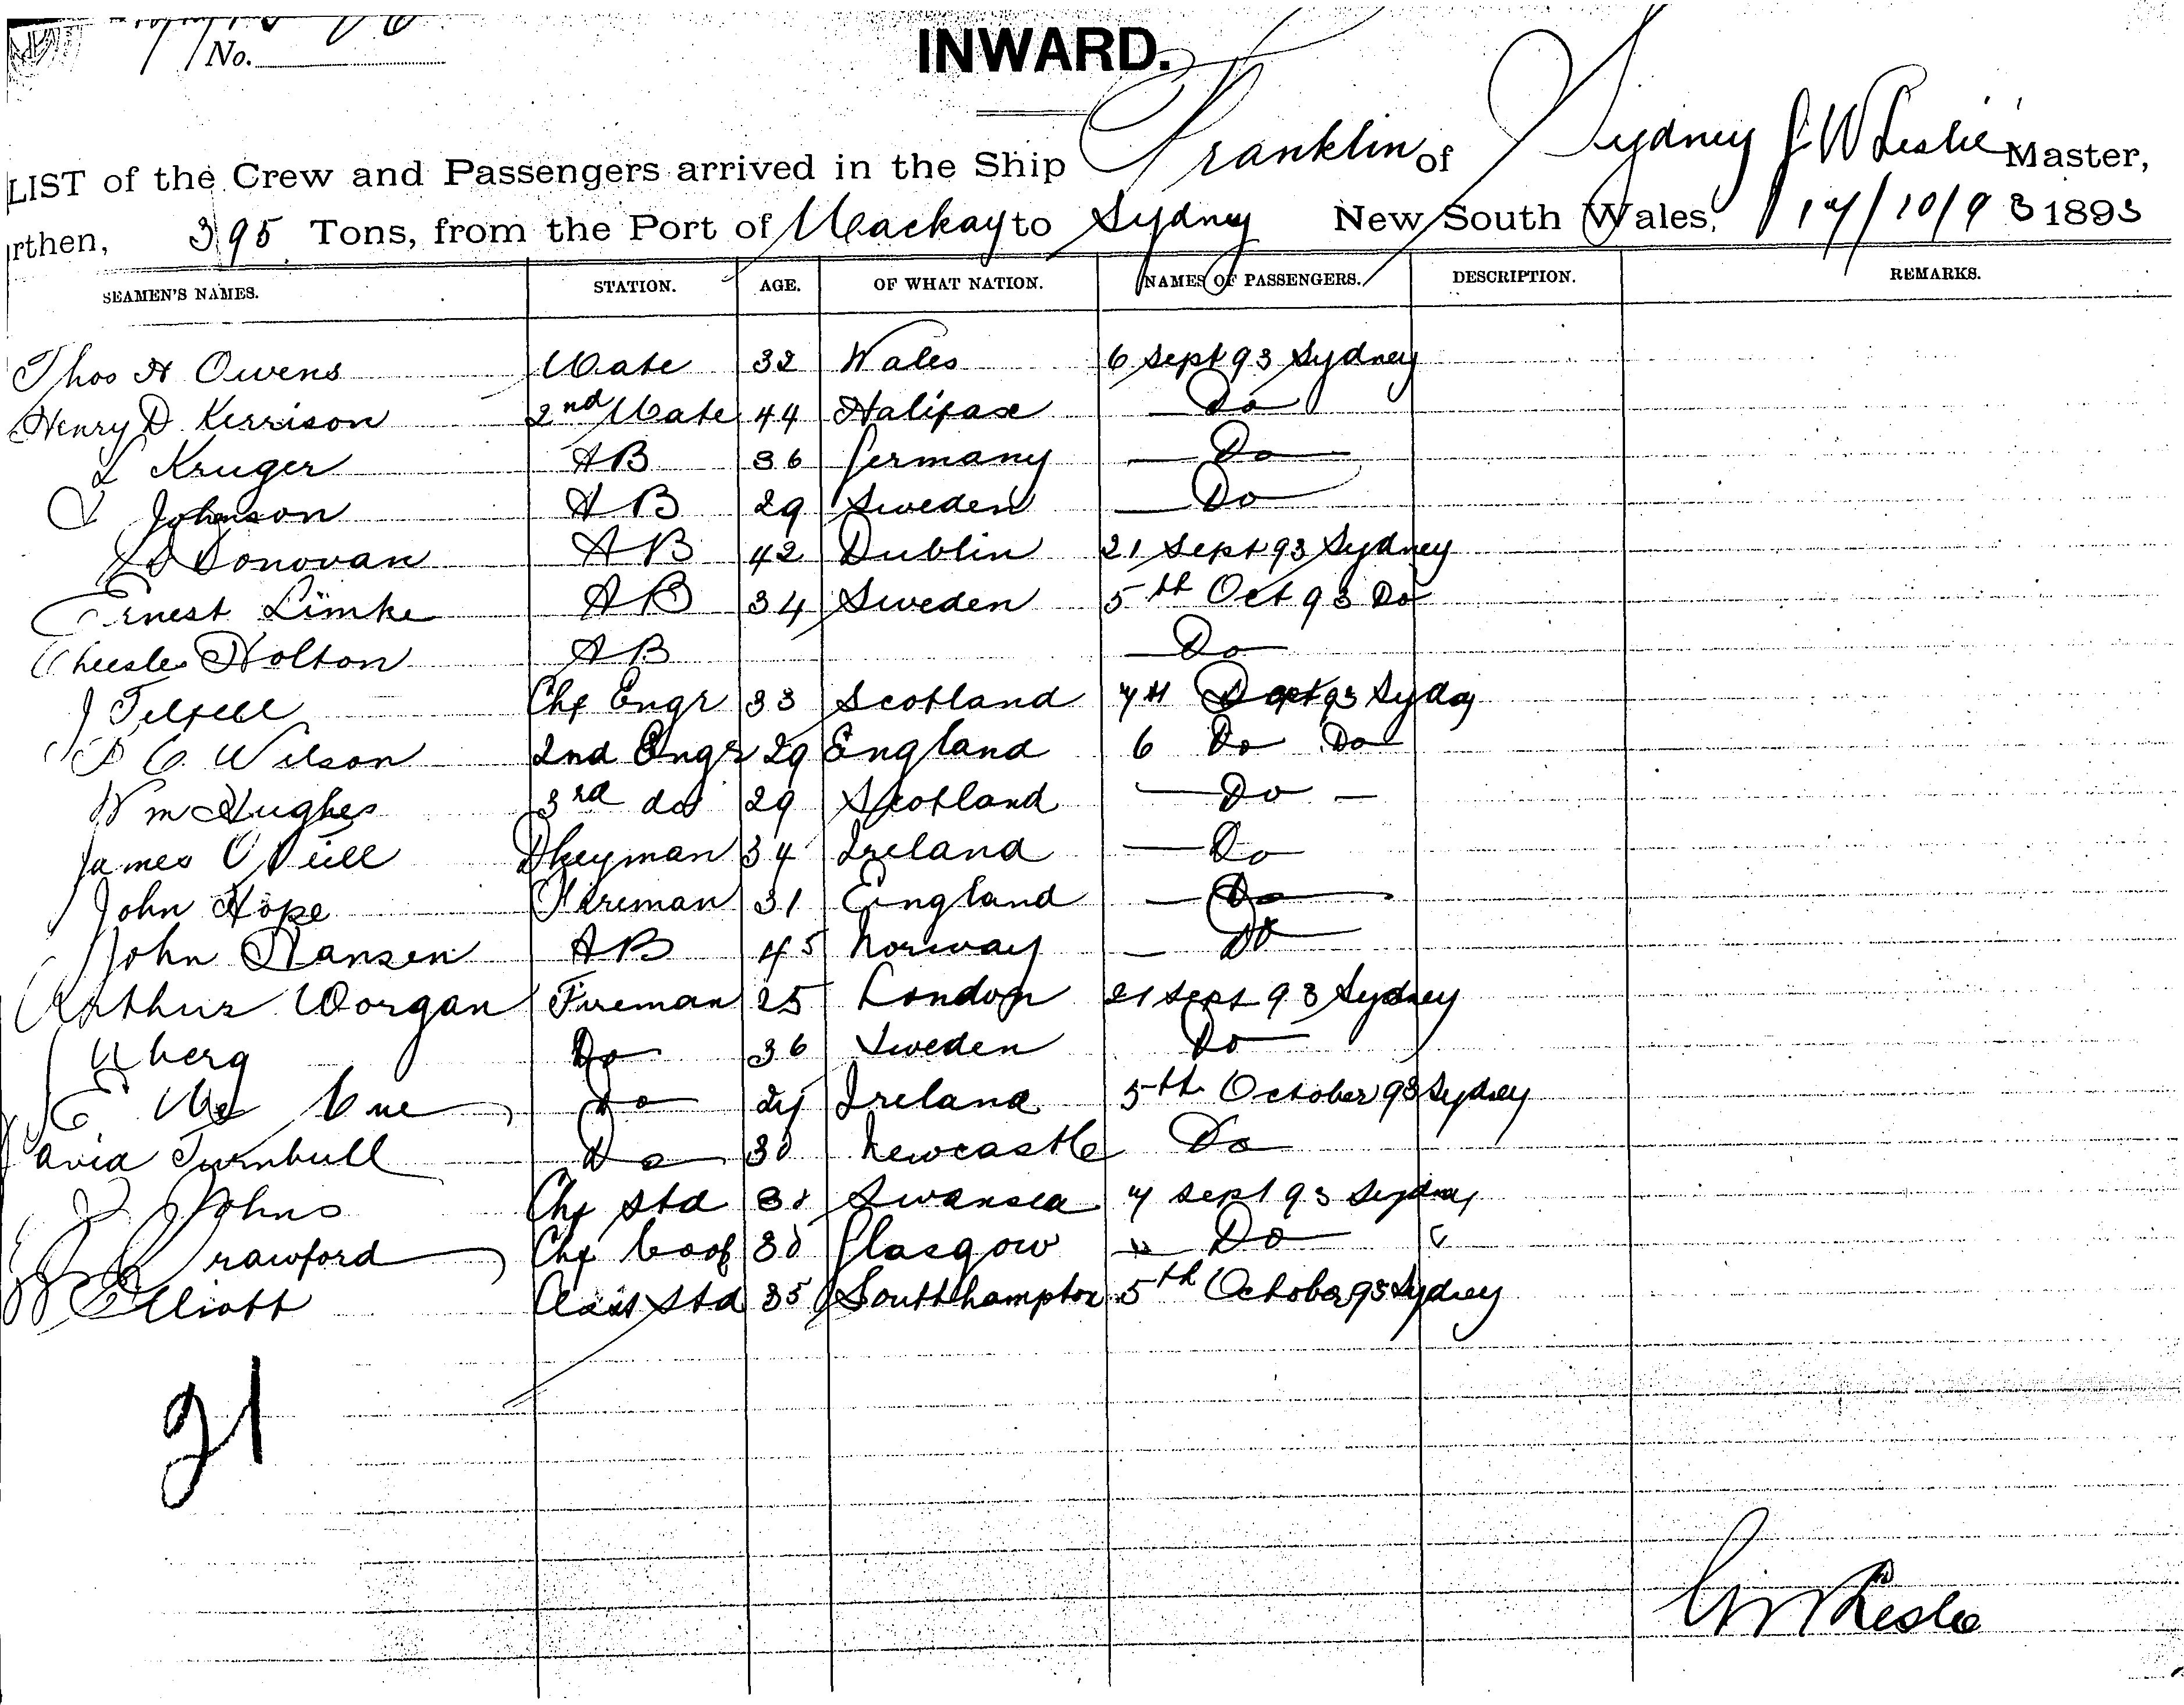 No.
INWARD.
LIST of the Crew and Passengers arrived in the Ship Franklin of Sydney J W Leslie Master,
rthen, 395 Tons, from the Port of Mackay to Sydney New South Wales, 17/10/93 1893
SEAMEN'S NAMES. STATION. AGE. OF WHAT NATION. NAMES OF PASSENGERS. DESCRIPTION. REMARKS.
Thos H Owens Mate 32 Wales 6 Sept 93 Sydney
Henry D Kerrison 2nd Mate 44 Halifax Do
L Kruger AB 36 Germany Do
Johnson AB 29 Sweden Do
Donovan AB 42 Dublin 21 Sept 93 Sydney
Ernest Limke AB 34 Sweden 5th Oct 93 Do
Holton AB Do
J Chf Engr 33 Scotland 7th 93 Sydny
C Wilson 2nd Engr 29 England 6 Do Do
Wm Hughes 3rd do 29 Scotland Do
James O Neill Dkeyman 34 Ireland Do
John Hope Fireman 31 England Do
John Hansen AB 45 Norway Do
Arthur Worgan Fireman 25 London 21 Sept 93 Sydney
Uberg Do 36 Sweden Do
E Mc Do Ireland 5th October 93 Sydney
avid Turnbull Do 30 Newcastle Do
J Johns Chf Std 30 Swansea 7 Sept 93 Sydney
J Crawford Chf Cook 30 Glasgow " Do "
W Elliott Std 35 Southhampton 5th October 93 Sydney
21
J W Leslie